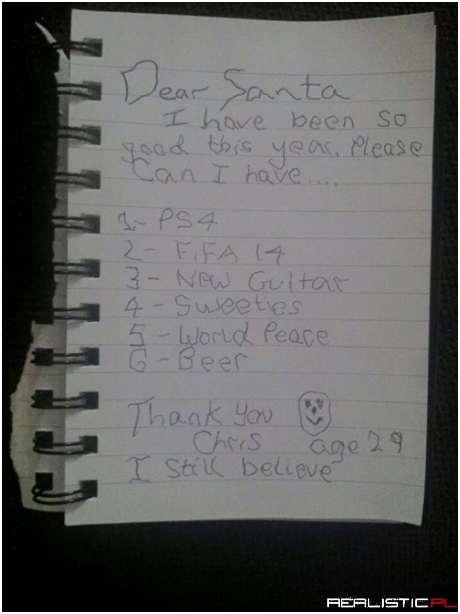 Dear Santa
I have been so
good this year. Please
Can I have....
1- PS4
2- FIFA 14
3- New Guitar
4- Sweeties
5- World Peace
6- Beer
Thank You
Chris age 29
I still believe
REALISTIC.PL